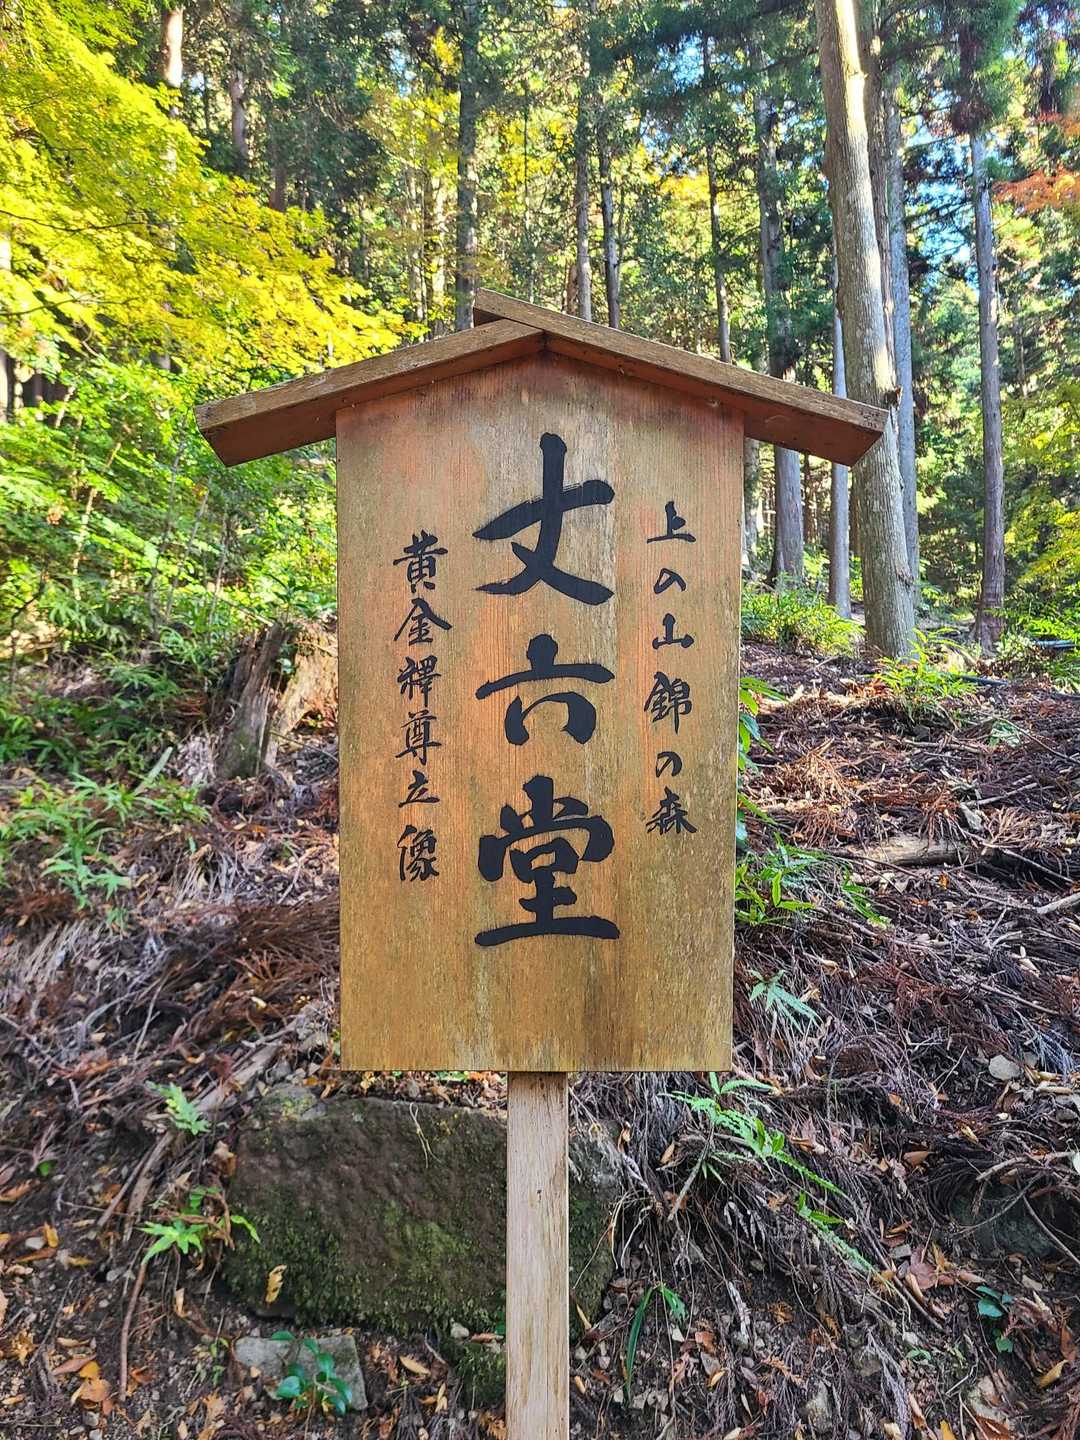 上の山錦の森
丈六堂
黄金釋尊立像